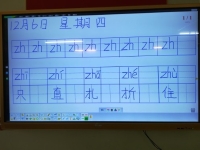 12月6日 星期四
zh zh zh zh zh zh zh zh
zhī zhí zhā zhé zhù
只 直 扎 折 住